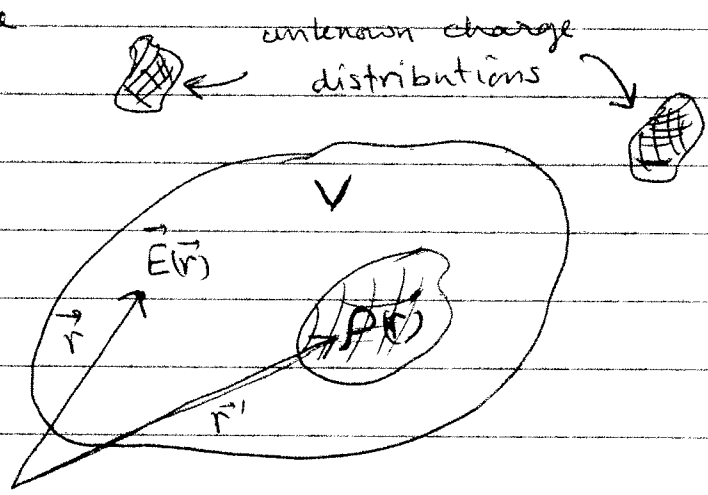 unknown charge
distributions
V
E⃗(r⃗)
r⃗
ρ(r)
r⃗'